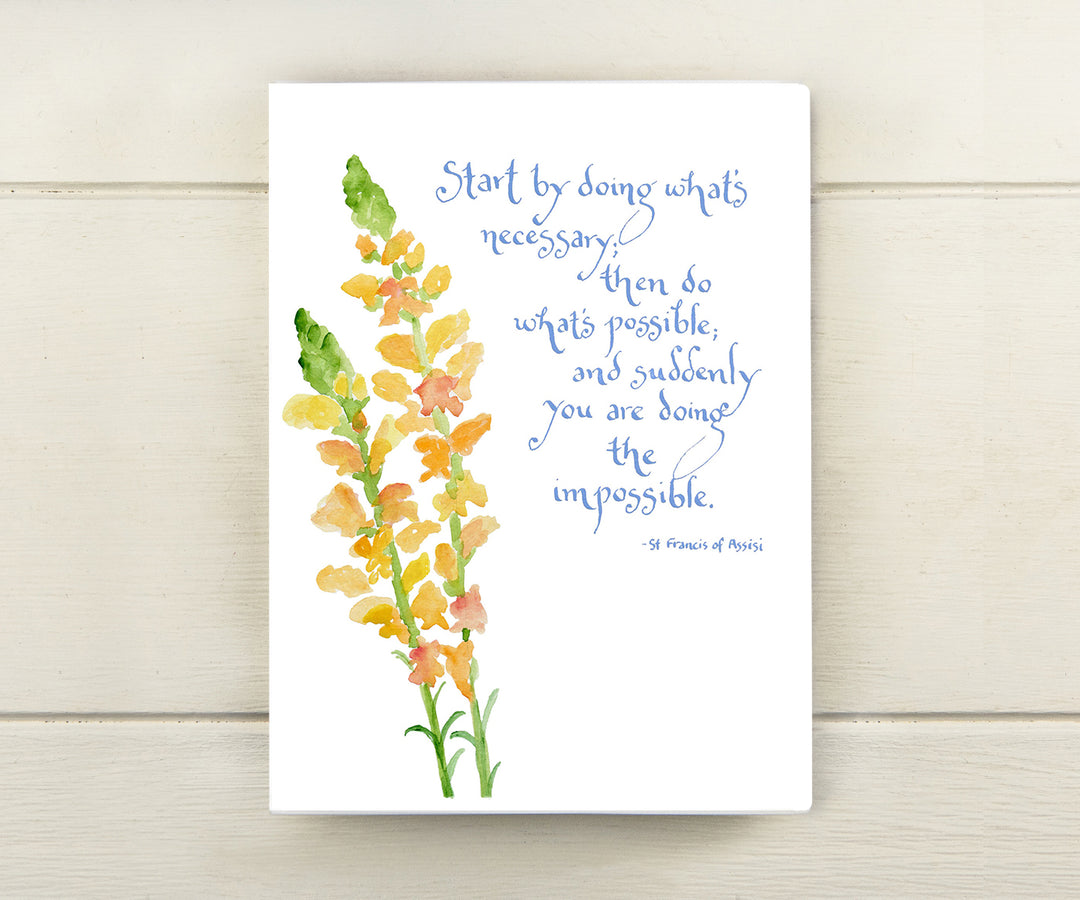 Start by doing what's
necessary;
then do
what's possible;
and suddenly
you are doing
the
impossible.
-St Francis of Assisi